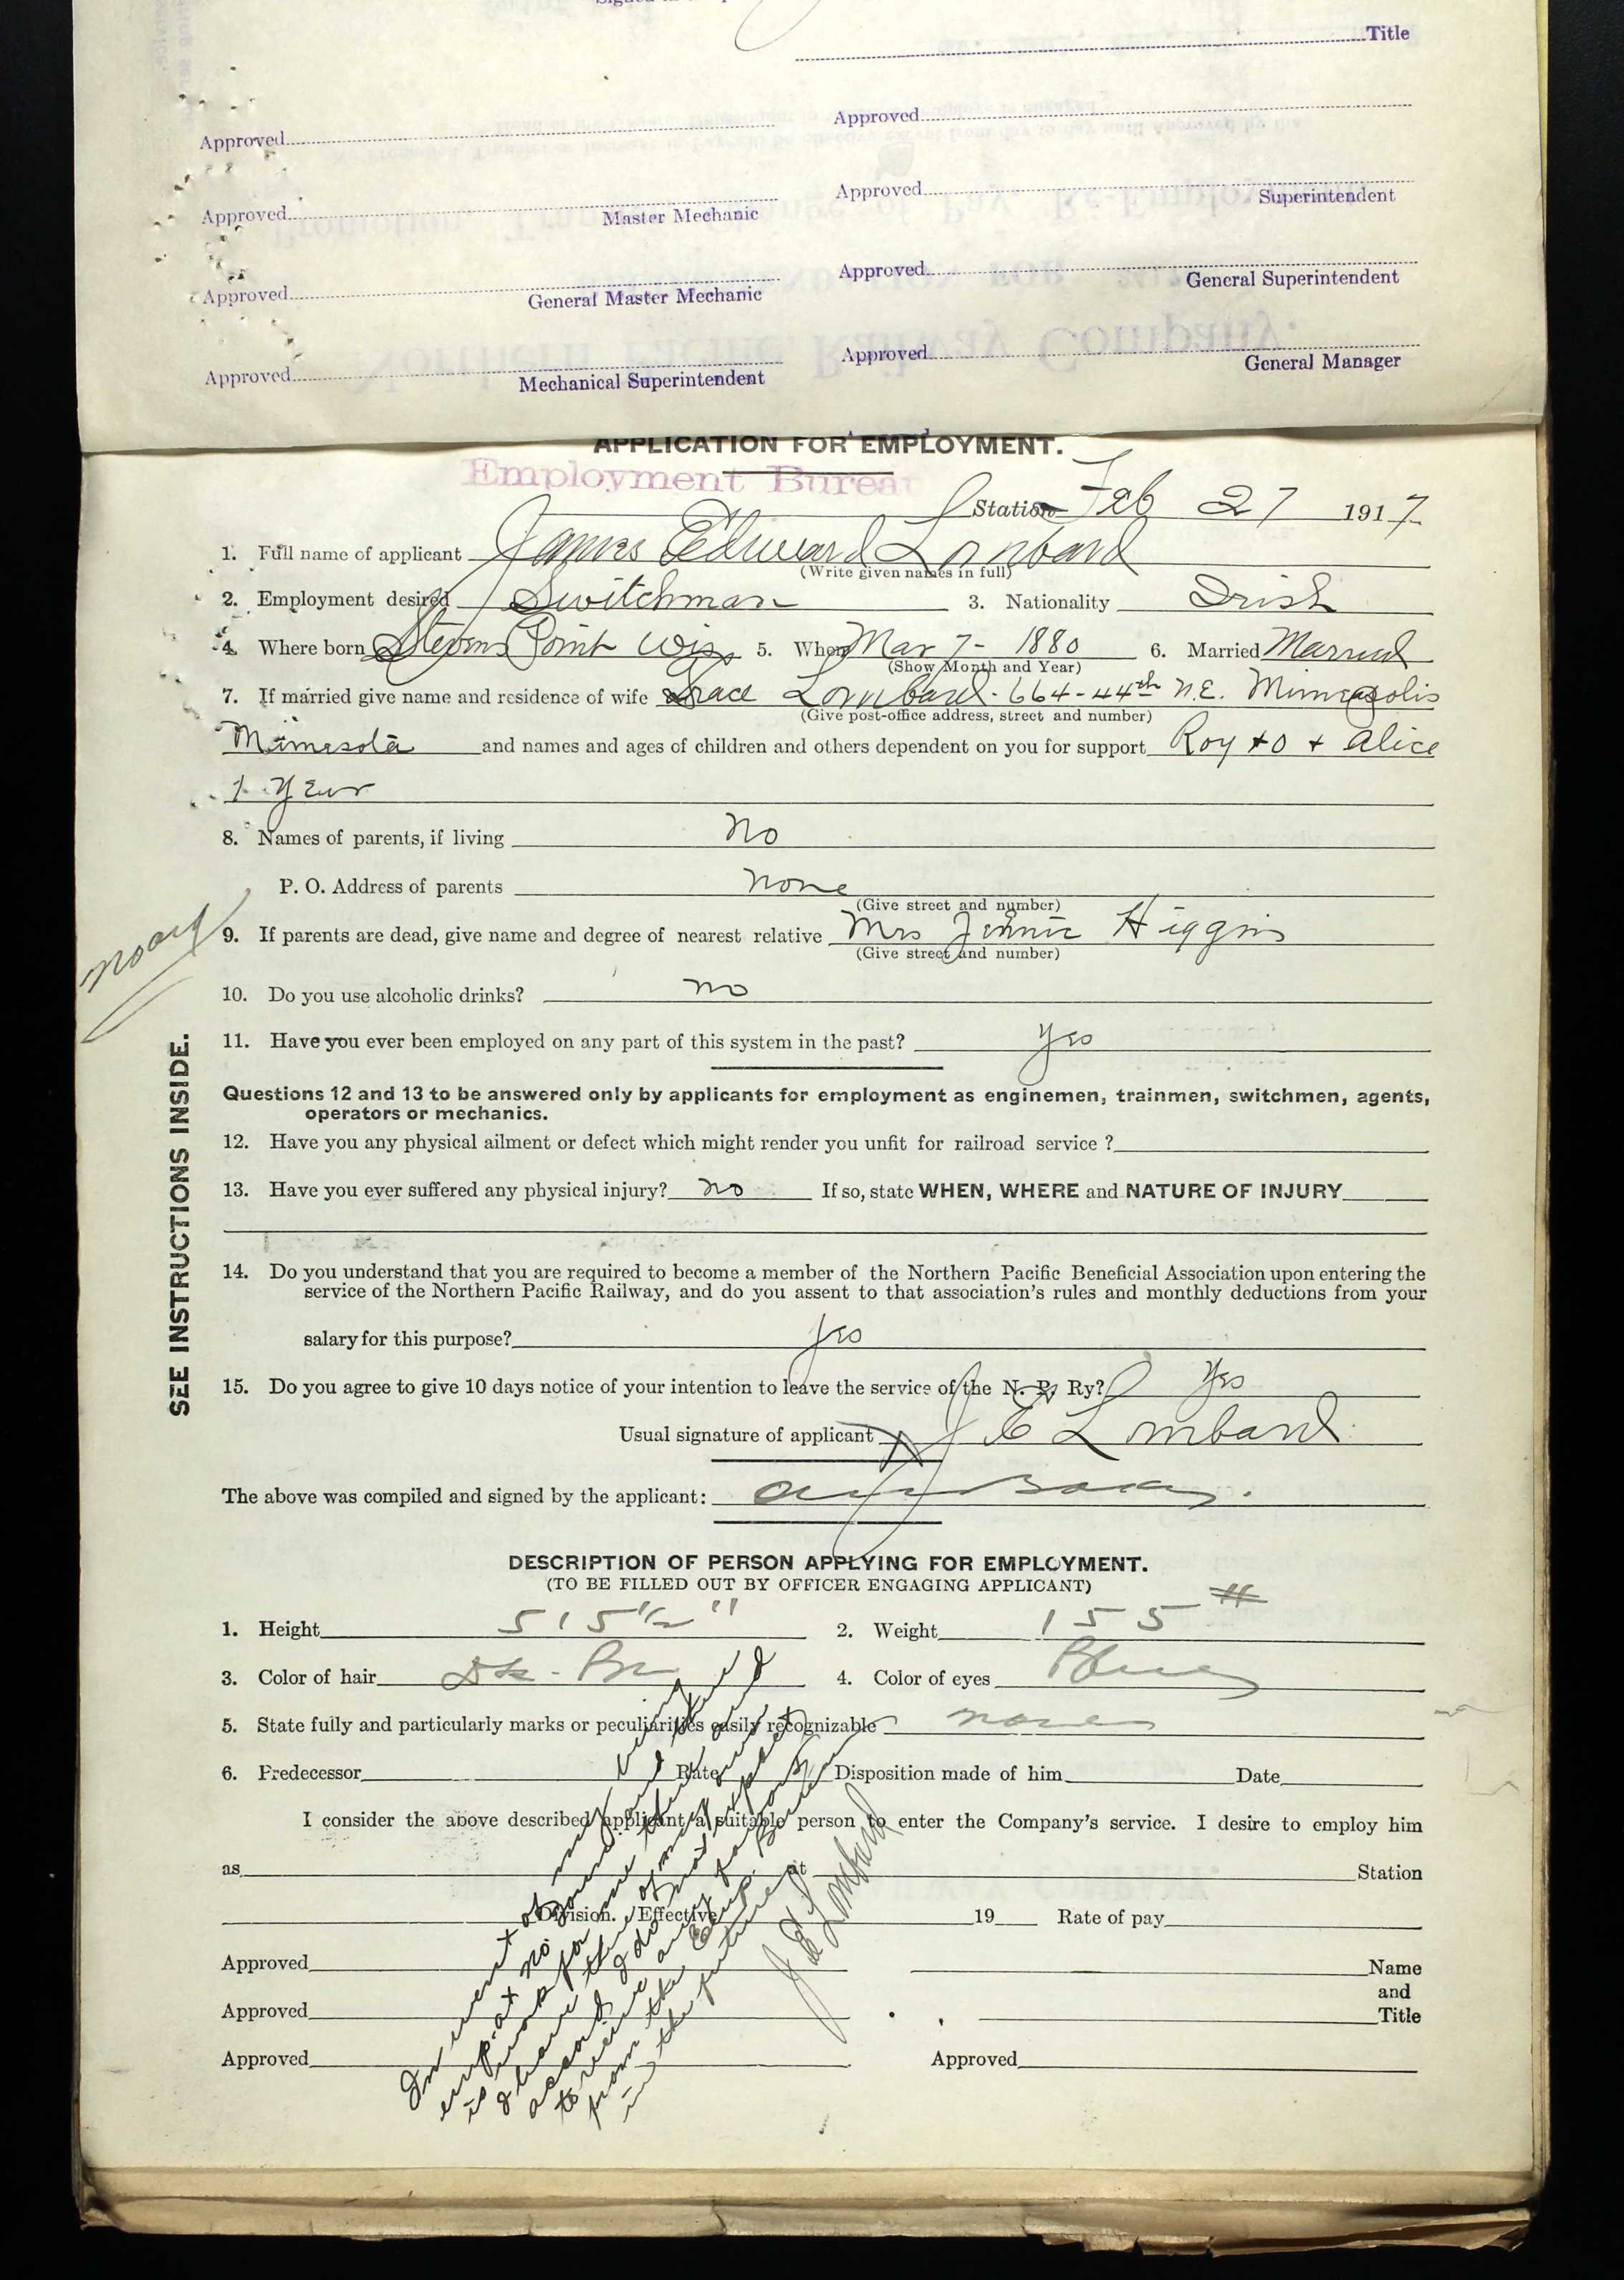 Title
Approved
Approved
Approved
Master Mechanic
Approved
Superintendent
Approved
General Master Mechanic
Approved
General Superintendent
Approved
Mechanical Superintendent
Approved
General Manager
APPLICATION FOR EMPLOYMENT.
Employment Bureau
Station Feb 27 1917
1. Full name of applicant James Edward Lombard
(Write given names in full)
2. Employment desired Switchman 3. Nationality Irish
4. Where born Stevens Point Wis 5. When Mar 7 - 1880 6. Married Married
(Show Month and Year)
7. If married give name and residence of wife Grace Lombard - 664 - 44th N.E. Minneapolis
(Give post-office address, street and number)
Minnesota and names and ages of children and others dependent on you for support Roy + Alice
1 year
8. Names of parents, if living no
P. O. Address of parents none
(Give street and number)
9. If parents are dead, give name and degree of nearest relative Mrs Jennie Higgins
(Give street and number)
10. Do you use alcoholic drinks? no
11. Have you ever been employed on any part of this system in the past? yes
Questions 12 and 13 to be answered only by applicants for employment as enginemen, trainmen, switchmen, agents,
operators or mechanics.
12. Have you any physical ailment or defect which might render you unfit for railroad service ?
13. Have you ever suffered any physical injury? no If so, state WHEN, WHERE and NATURE OF INJURY
SEE INSTRUCTIONS INSIDE.
14. Do you understand that you are required to become a member of the Northern Pacific Beneficial Association upon entering the
service of the Northern Pacific Railway, and do you assent to that association's rules and monthly deductions from your
salary for this purpose? yes
15. Do you agree to give 10 days notice of your intention to leave the service of the N. P. Ry? Yes
Usual signature of applicant J E Lombard
The above was compiled and signed by the applicant:
DESCRIPTION OF PERSON APPLYING FOR EMPLOYMENT.
(TO BE FILLED OUT BY OFFICER ENGAGING APPLICANT)
1. Height 5' 5 1/2" 2. Weight 155 #
3. Color of hair Dk - Br 4. Color of eyes Blue
5. State fully and particularly marks or peculiarities easily recognizable none
6. Predecessor Rate Disposition made of him Date
I consider the above described applicant a suitable person to enter the Company's service. I desire to employ him
as at Station
Division. Effective 19 Rate of pay
Approved Name
and
Approved Title
Approved Approved
In event of my being
emp. at no
is
I have this of my
accord I do not expect
to receive any favors
from the Emp. Bureau
in the future
J E Lombard